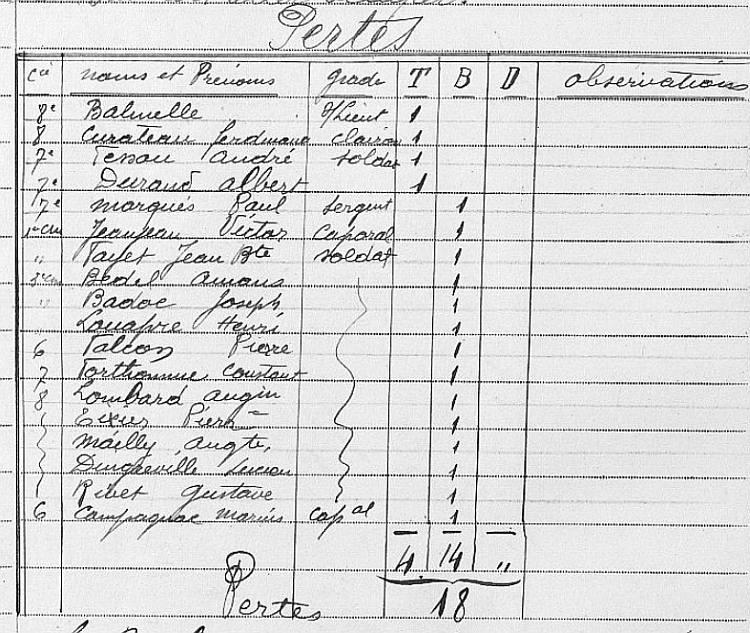 Pertes
Cie noms et Prénoms grade T B D observations
8e Balmelle s/Lieut 1
8 Curateau ferdinand clairon 1
7e Tessou andré soldat 1
7e Durand albert 1
7e marqués Paul sergent 1
Jeanjean Victor Caporal 1
" Tayet Jean Bte soldat 1
Bedel amans 1
" Badoc Joseph 1
" Louapre Henri 1
6 Talcon Pierre 1
7 Forthomme constant 1
8 Lombard augin 1
Pierre 1
Mailly augte, 1
Dinqueville Lucien 1
Rivet Gustave 1
6 Campagnac marius capal 1
4 14 "
Pertes 18